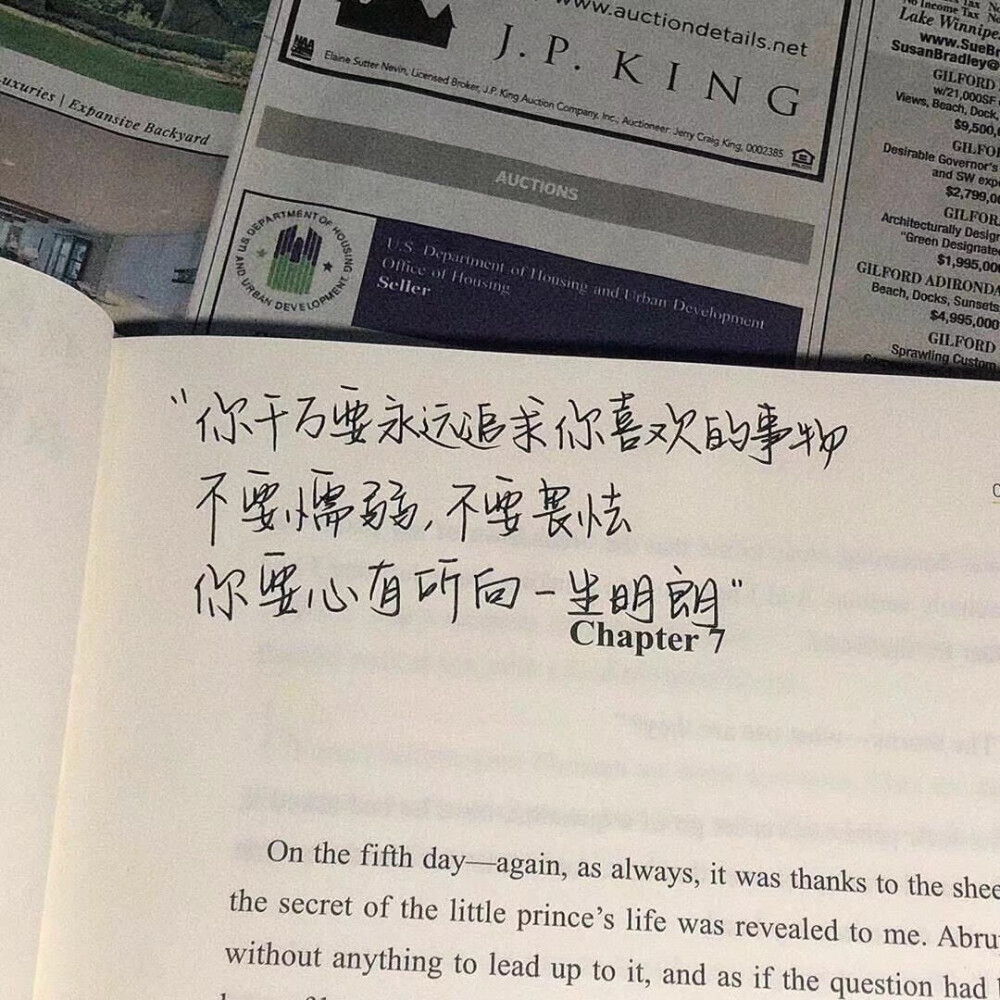 www.auctiondetails.net
J.P. KING
Elaine Sutter Nevin, Licensed Broker, J.P. King Auction Company, Inc., Auctioneer: Jerry Craig King, 0002385
Luxuries | Expansive Backyard
AUCTIONS
U.S. DEPARTMENT OF HOUSING AND URBAN DEVELOPMENT
U.S. Department of Housing and Urban Development
Office of Housing
Seller
Income Tax
Lake Winnipe
www.SueBr
SusanBradley@
GILFORD
w/21,000SF
Views, Beach, Dock,
$9,500,
GILFO
Desirable Governor's
and SW exp
$2,799,0
GILFOR
Architecturally Desig
"Green Designate
$1,995,000
GILFORD ADIRONDA
Beach, Docks, Sunsets
$4,995,000
GILFORD
Sprawling Custom
"你千万要永远追求你喜欢的事物
不要懦弱,不要畏怯
你要心有所向一生明朗"
Chapter 7
On the fifth day—again, as always, it was thanks to the shee
the secret of the little prince's life was revealed to me. Abru
without anything to lead up to it, and as if the question had